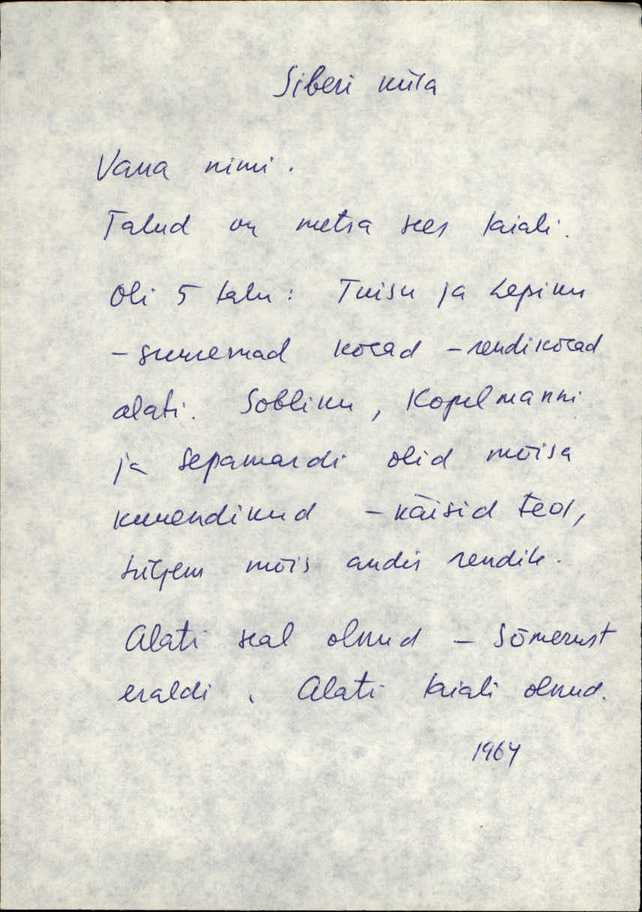 Siberi küla
Vana nimi.
Talud on metsa sees laiali.
Oli 5 talu: Tuisu ja Lepiku
- suuremad kohad - rendikohad
alati. Sobliku, Kopelmanni
ja Sepamardi olid mõisa
kuuendikud - käisid teol,
hiljem mõis andis rendile.
Alati seal olnud - Sõmerust
eraldi. Alati laiali olnud.
1964